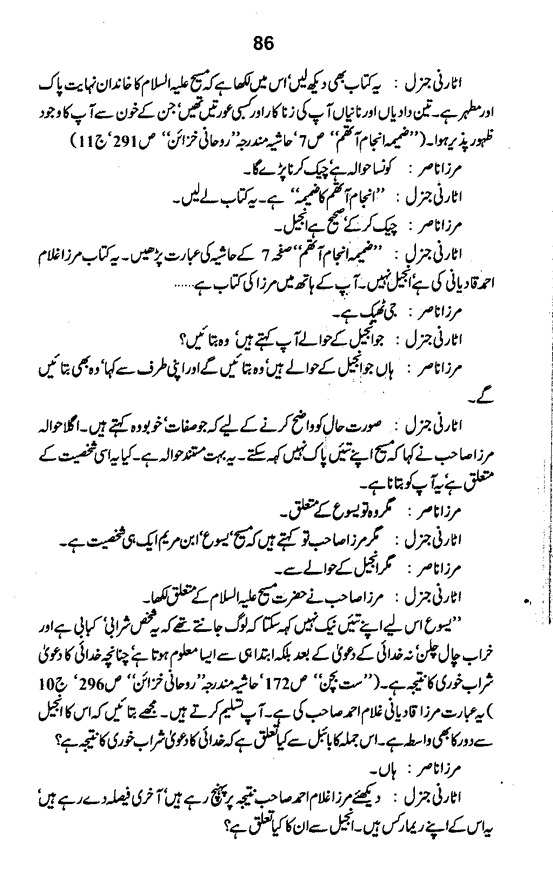 86
اٹارنی جنرل : یہ کتاب بھی دیکھ لیں‘ اس میں لکھا ہے کہ مسیح علیہ السلام کا خاندان نہایت پاک
اور مطہر ہے۔ تین دادیاں اور نانیاں آپ کی زنا کار اور کسبی عورتیں تھیں‘ جن کے خون سے آپ کا وجود
ظہور پذیر ہوا۔ (’’ضمیمہ انجام آتھم‘‘ ص7‘ حاشیہ مندرجہ ’’روحانی خزائن‘‘ ص291‘ ج11)
مرزا ناصر : کونسا حوالہ ہے‘ چیک کرنا پڑے گا۔
اٹارنی جنرل : ’’انجام آتھم کا ضمیمہ‘‘ ہے۔ یہ کتاب لے لیں۔
مرزا ناصر : چیک کر کے‘ صحیح ہے انجیل۔
اٹارنی جنرل : ’’ضمیمہ انجام آتھم‘‘ صفحہ 7 کے حاشیہ کی عبارت پڑھیں۔ یہ کتاب مرزا غلام
احمد قادیانی کی ہے‘ انجیل نہیں۔ آپ کے ہاتھ میں مرزا کی کتاب ہے......
مرزا ناصر : جی ٹھیک ہے۔
اٹارنی جنرل : جو انجیل کے حوالے آپ کہتے ہیں‘ وہ بتائیں؟
مرزا ناصر : ہاں جو انجیل کے حوالے ہیں‘ وہ بتائیں گے اور اپنی طرف سے کہا‘ وہ بھی بتائیں
گے۔
اٹارنی جنرل : صورت حال کو واضح کرنے کے لیے کہ جو صفات‘ خوبو وہ کہتے ہیں۔ اگلا حوالہ
مرزا صاحب نے کہا کہ مسیح اپنے تئیں پاک نہیں کہہ سکتے۔ یہ بہت مستند حوالہ ہے۔ کیا یہ اسی شخصیت کے
متعلق ہے‘ یہ آپ کو بتانا ہے۔
مرزا ناصر : مگر وہ تو یسوع کے متعلق۔
اٹارنی جنرل : مگر مرزا صاحب تو کہتے ہیں کہ مسیح‘ یسوع‘ ابن مریم ایک ہی شخصیت ہے۔
مرزا ناصر : مگر انجیل کے حوالے سے۔
اٹارنی جنرل : مرزا صاحب نے حضرت مسیح علیہ السلام کے متعلق لکھا۔
’’یسوع اس لیے اپنے تئیں نیک نہیں کہہ سکتا کہ لوگ جانتے تھے کہ یہ شخص شرابی‘ کبابی ہے اور
خراب چال چلن‘ نہ خدائی کے دعویٰ کے بعد بلکہ ابتدا ہی سے ایسا معلوم ہوتا ہے‘ چنانچہ خدائی کا دعویٰ
شراب خوری کا نتیجہ ہے۔ (’’ست بچن‘‘ ص172‘ حاشیہ مندرجہ ’’روحانی خزائن‘‘ ص296‘ ج10
) یہ عبارت مرزا قادیانی غلام احمد صاحب کی ہے۔ آپ تسلیم کرتے ہیں۔ مجھے بتائیں کہ اس کا انجیل
سے دور کا بھی واسطہ ہے۔ اس جملہ کا بائبل سے کیا تعلق ہے کہ خدائی کا دعویٰ شراب خوری کا نتیجہ ہے؟
مرزا ناصر : ہاں۔
اٹارنی جنرل : دیکھئے مرزا غلام احمد صاحب نتیجہ پر پہنچ رہے ہیں‘ آخری فیصلہ دے رہے ہیں‘
یہ اس کے اپنے ریمارکس ہیں۔ انجیل سے ان کا کیا تعلق ہے؟